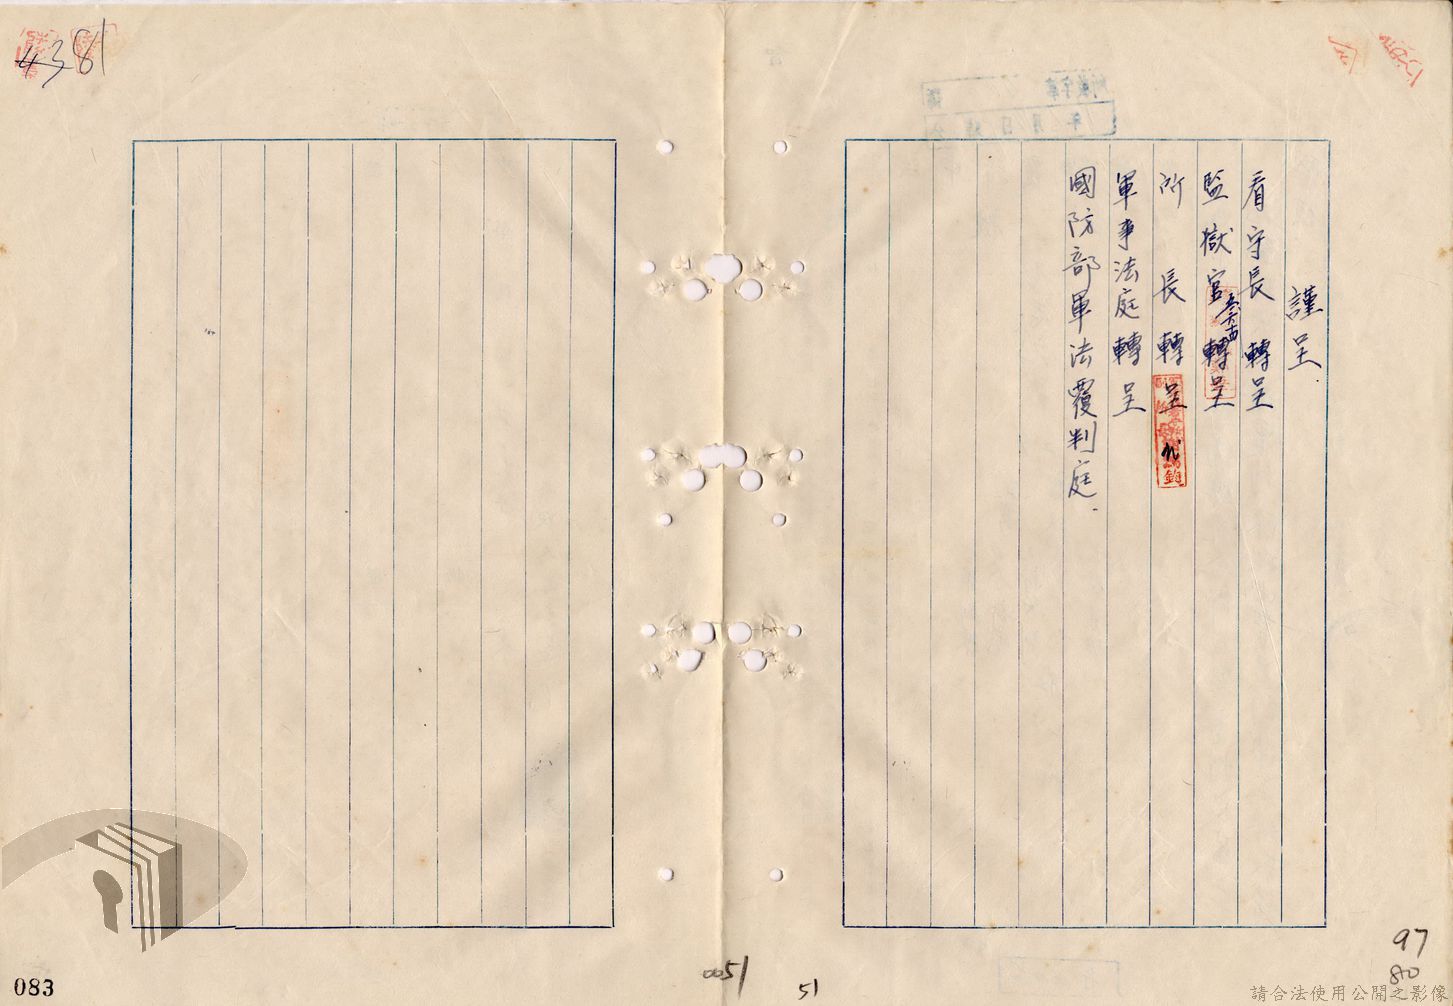 謹呈.
看守長轉呈
監獄官轉呈
所長轉呈
代
軍事法庭轉呈
國防部軍法覆判庭.
4381
97
80
0051
51
083
請合法使用公開之影像